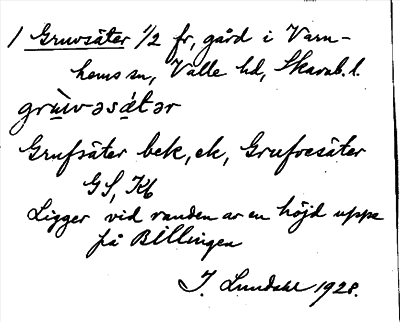 1 Gruvsäter 1/2 fr, gård i Varn-
hems sn, Valle hd, Skarab. l.
grùwəsǽtər
Grufsäter bek, ek, Grufvesäter
GS, Kb
Ligger vid randen av en höjd uppe
på Billingen
I. Lundahl 1928.